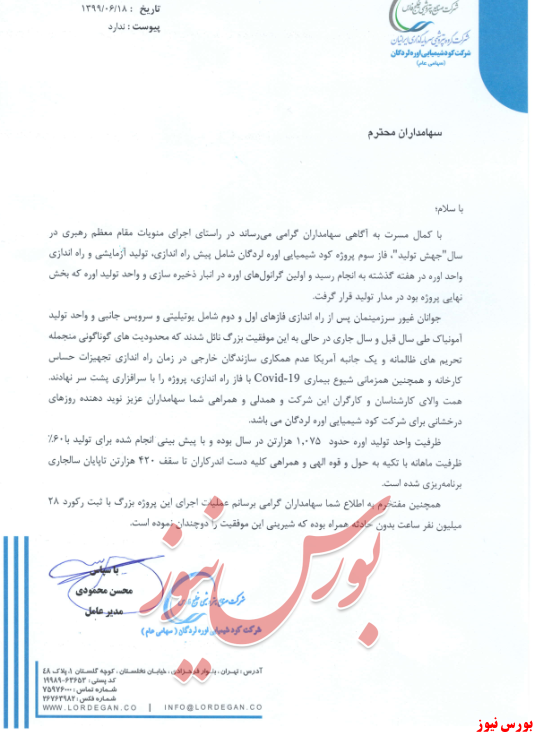 تاریخ : ۱۳۹۹/۰۶/۱۸
پیوست : ندارد
شرکت کود شیمیایی اوره لردگان
(سهامی عام)
سهامداران محترم
با سلام؛
با کمال مسرت به آگاهی سهامداران گرامی می‌رساند در راستای اجرای منویات مقام معظم رهبری در
سال"جهش تولید"، فاز سوم پروژه کود شیمیایی اوره لردگان شامل پیش راه اندازی، تولید آزمایشی و راه اندازی
واحد اوره در هفته گذشته به انجام رسید و اولین گرانول‌های اوره در انبار ذخیره سازی و واحد تولید اوره که بخش
نهایی پروژه بود در مدار تولید قرار گرفت.
جوانان غیور سرزمینمان پس از راه اندازی فازهای اول و دوم شامل یوتیلیتی و سرویس جانبی و واحد تولید
آمونیاک طی سال قبل و سال جاری در حالی به این موفقیت بزرگ نائل شدند که محدودیت های گوناگونی منجمله
تحریم های ظالمانه و یک جانبه آمریکا عدم همکاری سازندگان خارجی در زمان راه اندازی تجهیزات حساس
کارخانه و همچنین همزمانی شیوع بیماری Covid-19 با فاز راه اندازی، پروژه را با سرافرازی پشت سر نهادند.
همت والای کارشناسان و کارگران این شرکت و همدلی و همراهی شما سهامداران عزیز نوید دهنده روزهای
درخشانی برای شرکت کود شیمیایی اوره لردگان می باشد.
ظرفیت واحد تولید اوره حدود ۱،۰۷۵ هزارتن در سال بوده و با پیش بینی انجام شده برای تولید با۶۰٪
ظرفیت ماهانه با تکیه به حول و قوه الهی و همراهی کلیه دست اندرکاران تا سقف ۴۲۰ هزارتن تاپایان سالجاری
برنامه‌ریزی شده است.
همچنین مفتخرم به اطلاع شما سهامداران گرامی برسانم عملیات اجرای این پروژه بزرگ با ثبت رکورد ۲۸
میلیون نفر ساعت بدون حادثه همراه بوده که شیرینی این موفقیت را دوچندان نموده است.
با سپاس
محسن محمودی
مدیر عامل
شرکت کود شیمیایی اوره لردگان (سهامی عام)
بورس نیوز
آدرس : تهران ، بلوار ، خیابان نخلستان ، کوچه گلستان ۱، پلاک ۴۸
کد پستی : ۶۳۶۵۳-۱۹۹۸۹
شماره تماس : ۷۵۹۷۶۰۰۰
شماره فکس : ۲۶۷۶۳۹۸۲
WWW.LORDEGAN.CO | INFO@LORDEGAN.CO
بورس نیوز